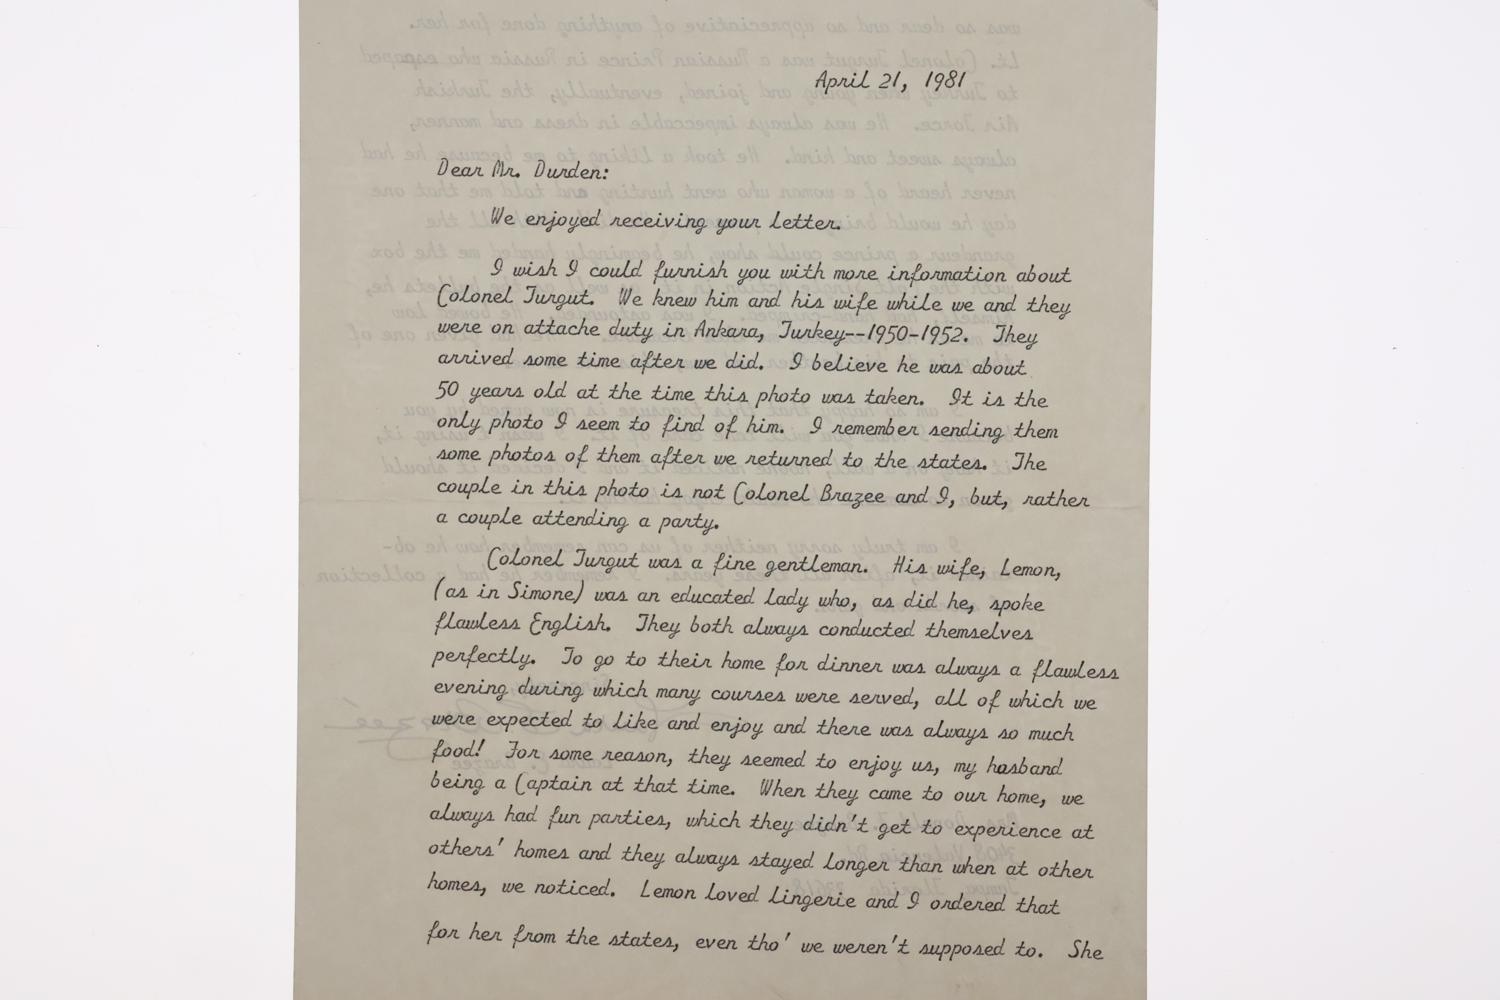 April 21, 1981
Dear Mr. Durden:
We enjoyed receiving your letter.
I wish I could furnish you with more information about
Colonel Turgut. We knew him and his wife while we and they
were on attache duty in Ankara, Turkey--1950-1952. They
arrived some time after we did. I believe he was about
50 years old at the time this photo was taken. It is the
only photo I seem to find of him. I remember sending them
some photos of them after we returned to the states. The
couple in this photo is not Colonel Brazee and I, but, rather
a couple attending a party.
Colonel Turgut was a fine gentleman. His wife, Lemon,
(as in Simone) was an educated lady who, as did he, spoke
flawless English. They both always conducted themselves
perfectly. To go to their home for dinner was always a flawless
evening during which many courses were served, all of which we
were expected to like and enjoy and there was always so much
food! For some reason, they seemed to enjoy us, my husband
being a Captain at that time. When they came to our home, we
always had fun parties, which they didn't get to experience at
others' homes and they always stayed longer than when at other
homes, we noticed. Lemon loved lingerie and I ordered that
for her from the states, even tho' we weren't supposed to. She